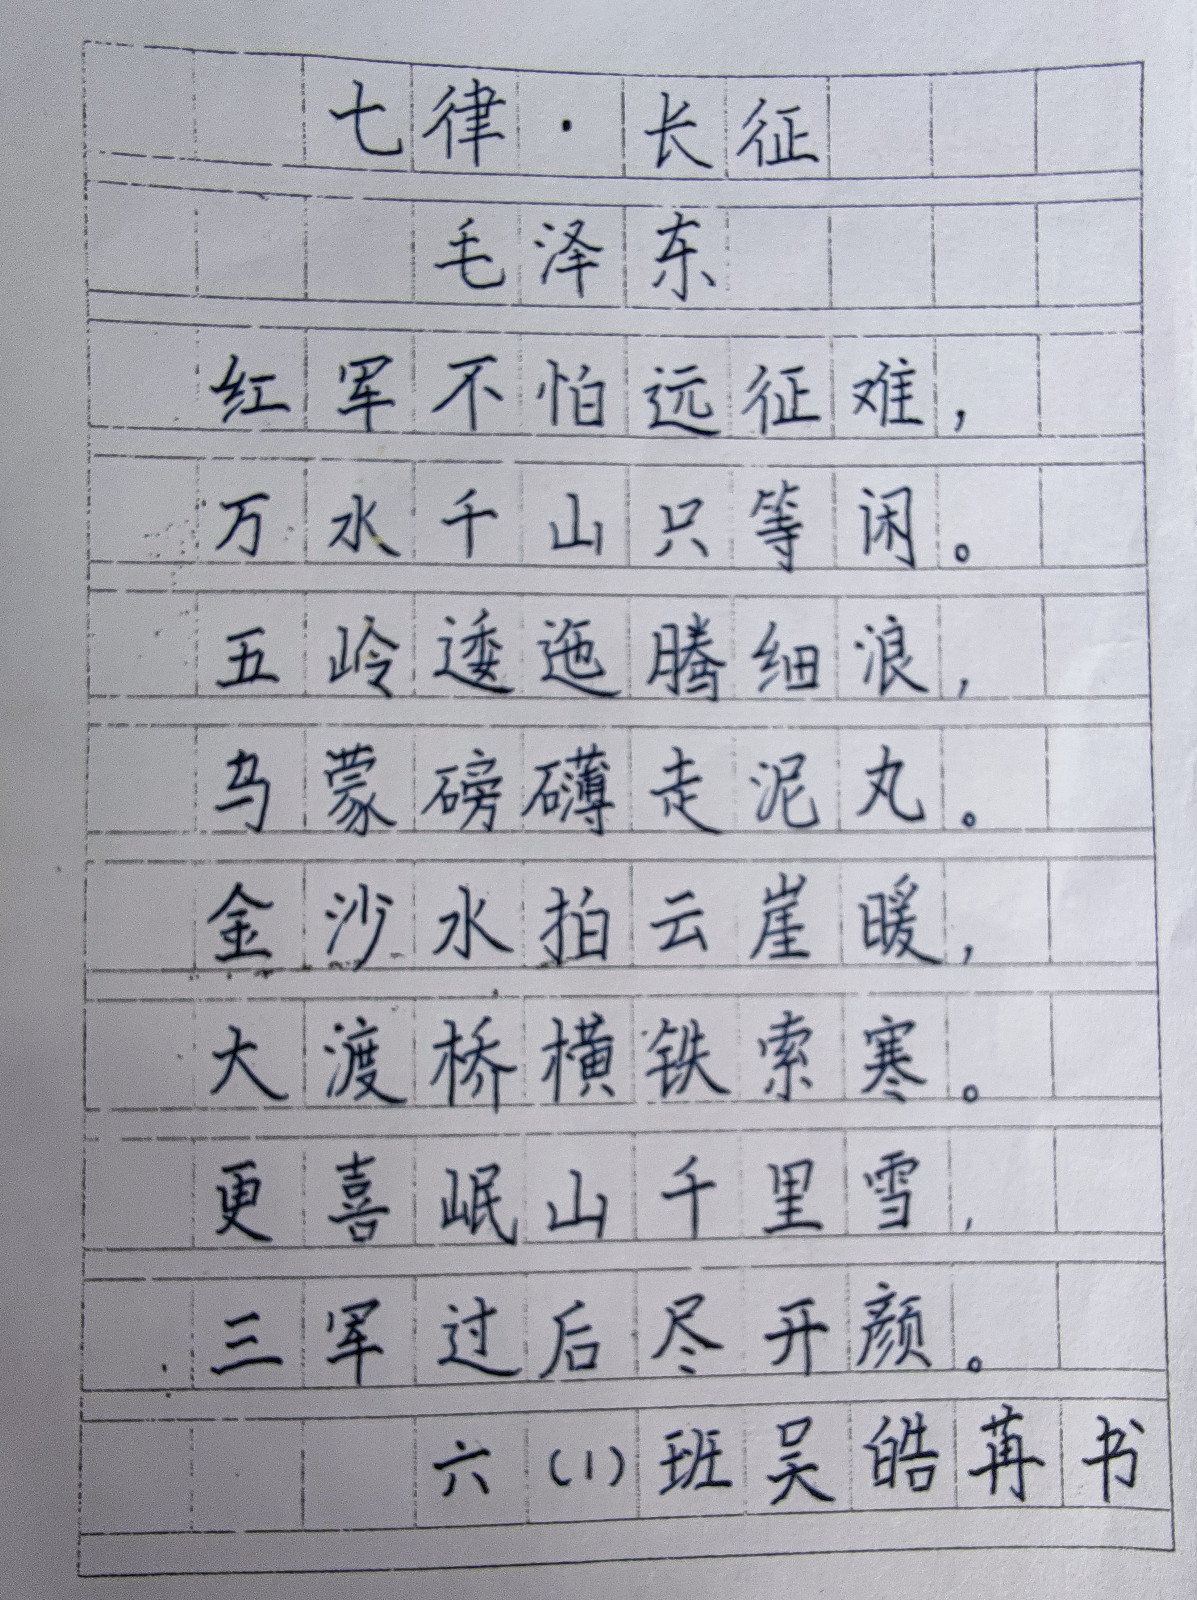 七律·长征
毛泽东
红军不怕远征难，
万水千山只等闲。
五岭逶迤腾细浪，
乌蒙磅礴走泥丸。
金沙水拍云崖暖，
大渡桥横铁索寒。
更喜岷山千里雪，
三军过后尽开颜。
六（1）班吴皓苒书